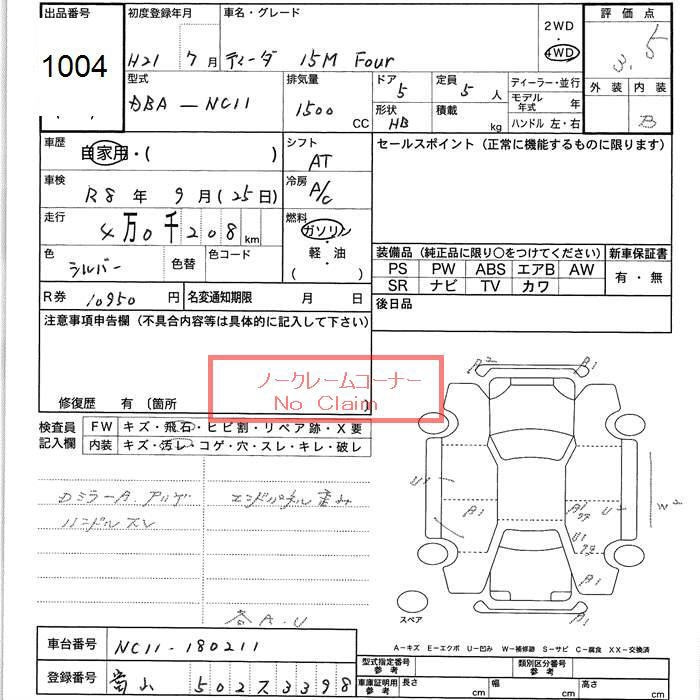 出品番号 初度登録年月 車名・グレード 2WD 評価点
1004 H21 7月 ティーダ 15M Four 4WD 3.5
型式 排気量 ドア 定員 ディーラー・並行 外装 内装
DBA-NC11 1500 CC 5 5人 モデル年式 年
形状 HB 積載 kg ハンドル 左・右 B
車歴 自家用・( ) シフト AT セールスポイント(正常に機能するものに限ります)
車検 R8年 9月(25日) 冷房 A/C
走行 4万0千208km 燃料 ガソリン・軽油・( )
色 シルバー 色替 色コード
装備品(純正品に限り○をつけてください) 新車保証書
PS PW ABS エアB AW 有・無
SR ナビ TV カワ
R券 10950円 名変通知期限 月 日 後日品
注意事項申告欄(不具合内容等は具体的に記入して下さい)
ノークレームコーナー
No Claim
修復歴 有 〔箇所
検査員記入欄 FW キズ・飛石・ヒビ割・リペア跡・X要
内装 キズ・汚レ・コゲ・穴・スレ・キレ・破レ
DミラーA.アルゲ エンドパネル歪み
ハンドルスレ
各A.U
A2 A1
U1 A1 U2 W2
A1
U1
A1
A1
スペア
A-キズ E-エクボ U-凹み W-補修跡 S-サビ C-腐食 XX-交換済
車台番号 NC11-180211 型式指定番号 参考 類別区分番号 参考
登録番号 富山 502ス3398 車庫証明用 参考 長さ cm 幅 cm 高さ cm